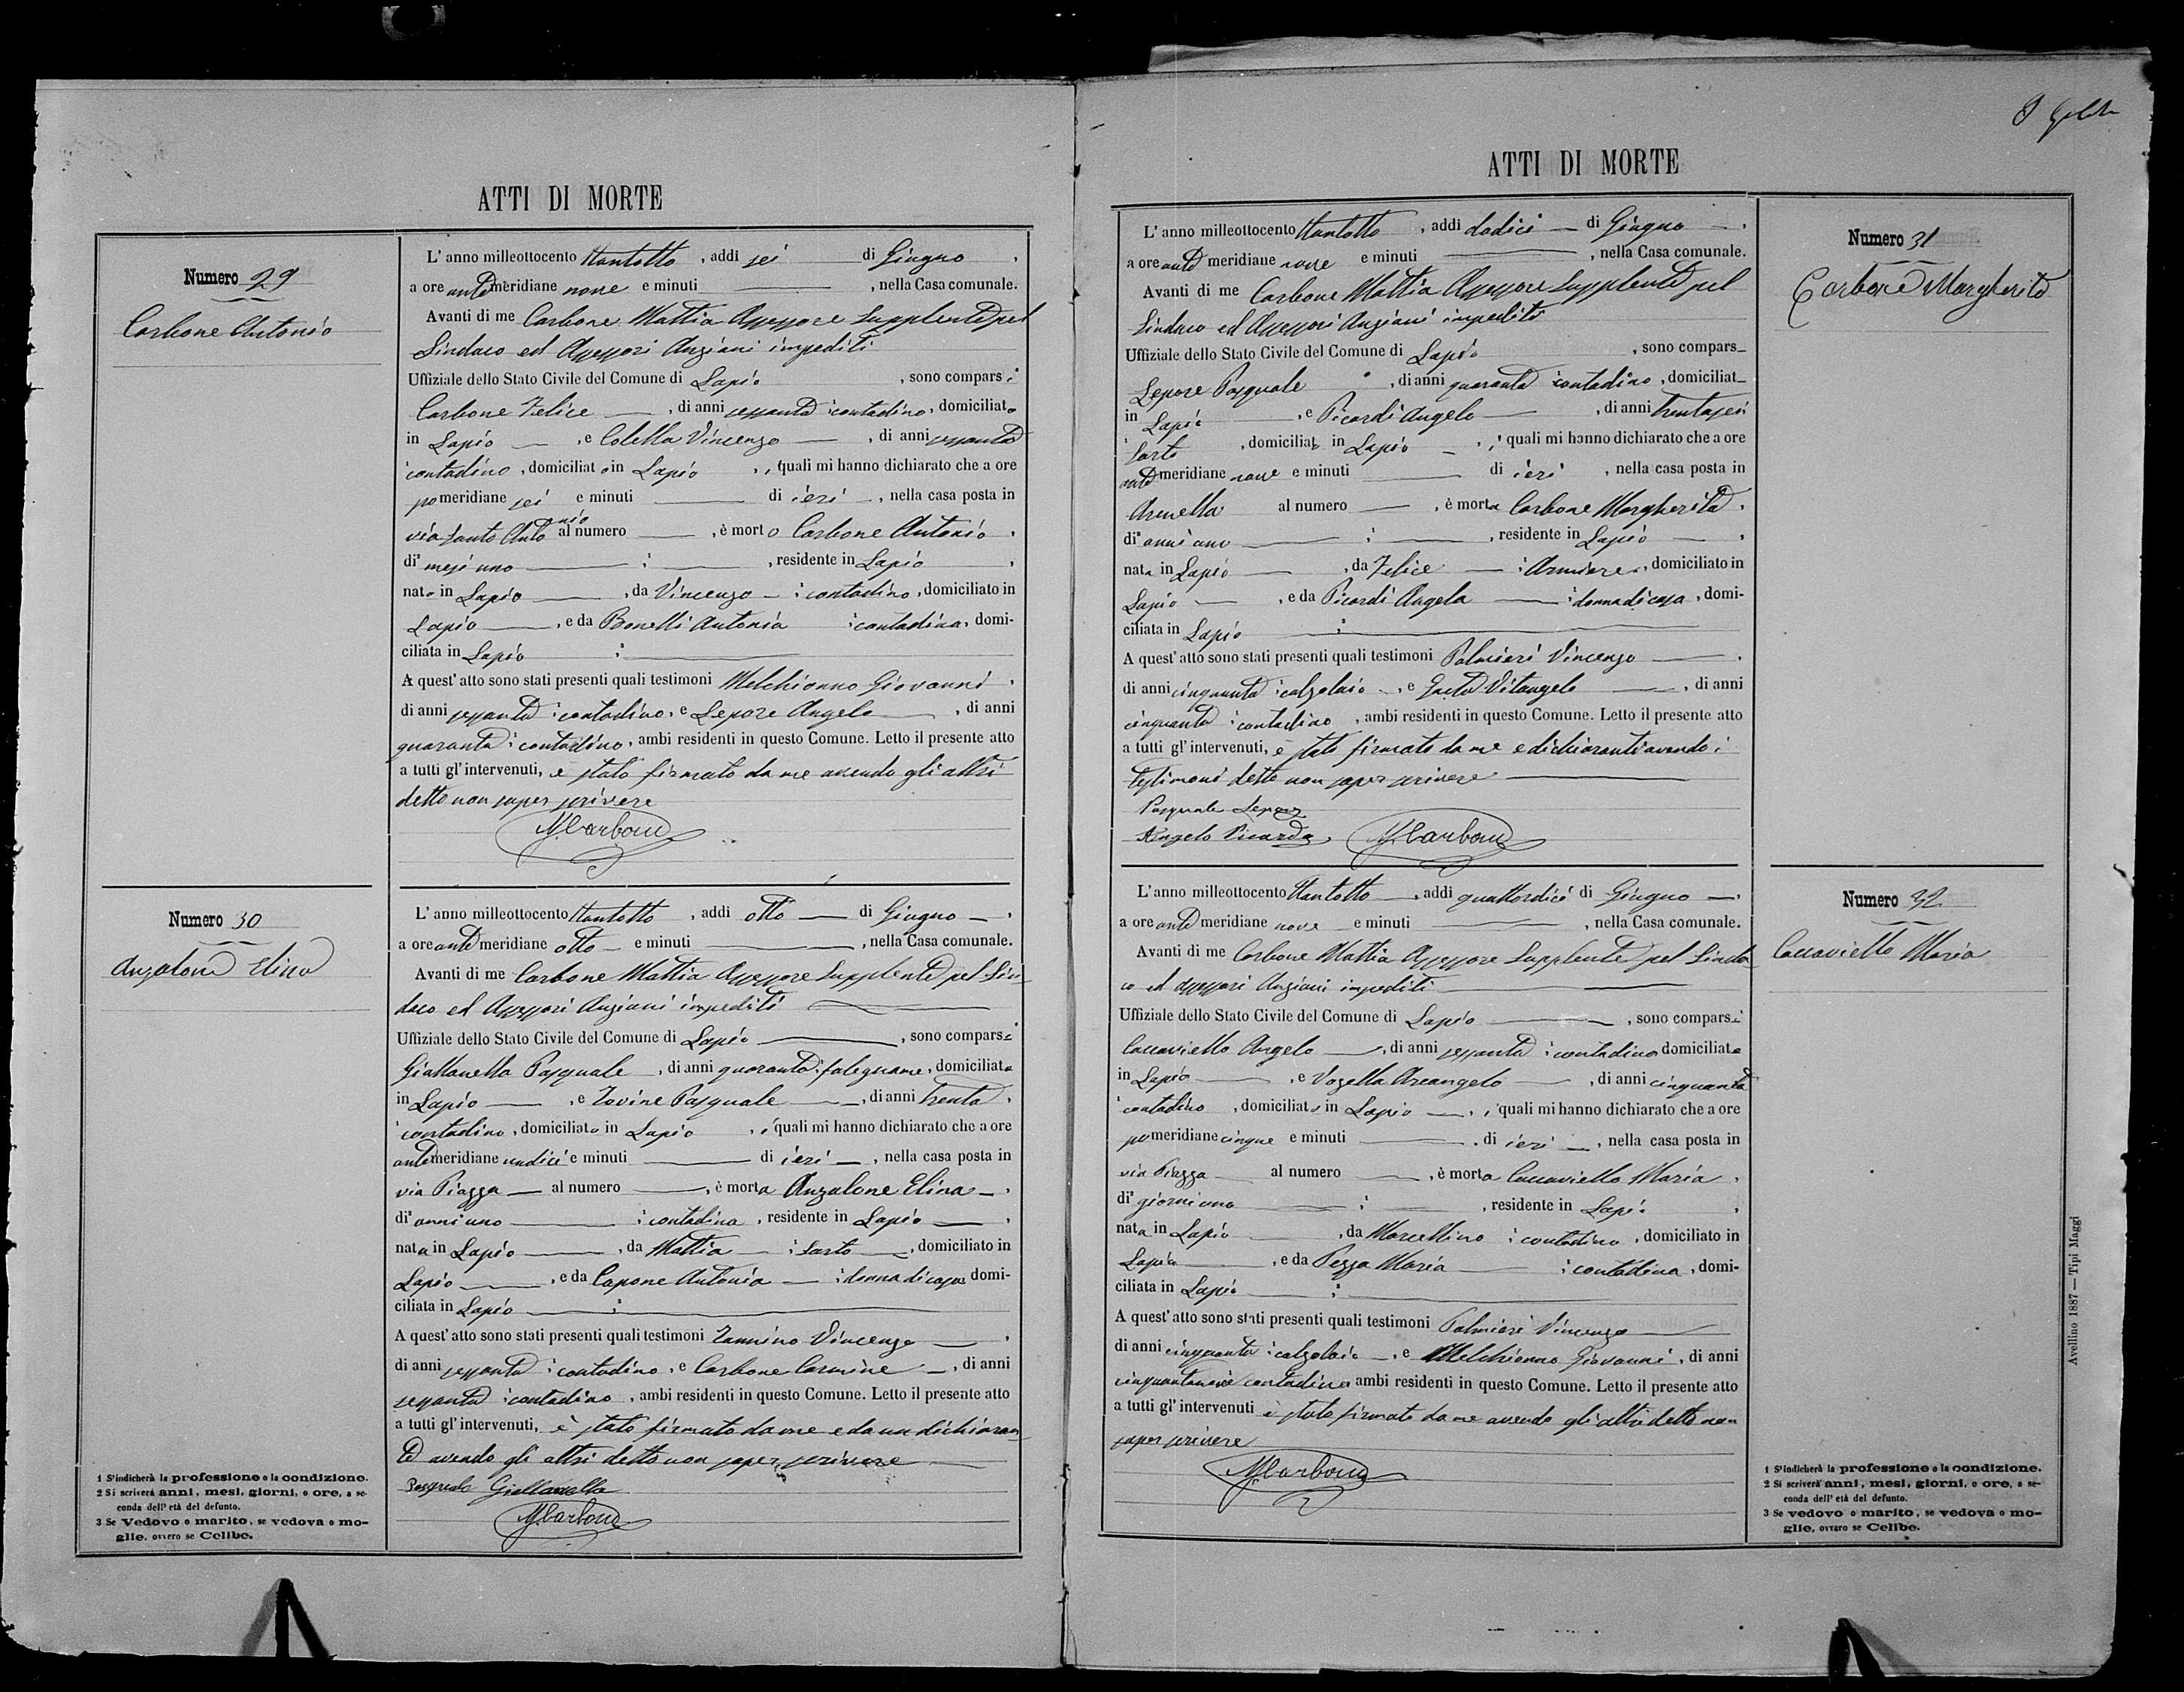 ATTI DI MORTE
Numero 29
Carbone Antonio
L'anno milleottocento ttantotto, addi sei di Giugno,
a ore ante meridiane nove e minuti —, nella Casa comunale.
Avanti di me Carbone Mattia Assessore Supplente pel
Sindaco ed Assessori Anziani impediti
Uffiziale dello Stato Civile del Comune di Lapio, sono comparsi
Carbone Felice —, di anni sessanta contadino, domiciliato
in Lapio —, e Colella Vincenzo —, di anni sessanta
contadino, domiciliato in Lapio, i quali mi hanno dichiarato che a ore
pomeridiane sei e minuti — di ieri —, nella casa posta in
via Santo Antonio al numero —, è morto Carbone Antonio,
di mesi uno —, residente in Lapio,
nato in Lapio —, da Vincenzo — contadino, domiciliato in
Lapio —, e da Bonelli Antonia contadina, domi-
ciliata in Lapio —
A quest'atto sono stati presenti quali testimoni Melchionno Giovanni,
di anni sessanta contadino, e Lepore Angelo —, di anni
quaranta contadino, ambi residenti in questo Comune. Letto il presente atto
a tutti gl'intervenuti, è stato firmato da me avendo gli altri
detto non saper scrivere
M Carbone
Numero 30
Anzalone Elina
L'anno milleottocento ttantotto, addi otto — di Giugno —,
a ore ante meridiane otto — e minuti —, nella Casa comunale.
Avanti di me Carbone Mattia Assessore Supplente pel Sin-
daco ed Assessori Anziani impediti —
Uffiziale dello Stato Civile del Comune di Lapio —, sono comparsi
Giallanella Pasquale, di anni quaranta falegname, domiciliato
in Lapio —, e Iovine Pasquale —, di anni trenta,
contadino, domiciliato in Lapio, i quali mi hanno dichiarato che a ore
antemeridiane undici e minuti — di ieri —, nella casa posta in
via Piazza — al numero —, è morta Anzalone Elina —,
di anni uno — contadina, residente in Lapio —,
nata in Lapio —, da Mattia — Sarto —, domiciliato in
Lapio —, e da Capone Antonia — donna di casa domi-
ciliata in Lapio —
A quest'atto sono stati presenti quali testimoni Iannino Vincenzo —,
di anni sessanta contadino, e Carbone Carmine —, di anni
sessanta contadino, ambi residenti in questo Comune. Letto il presente atto
a tutti gl'intervenuti, è stato firmato da me e da un dichiaran
te avendo gli altri detto non saper scrivere —
Pasquale Giallanella
M Carbone
1 S'indicherà la professione o la condizione.
2 Si scriverà anni, mesi, giorni, o ore, a se-
conda dell'età del defunto.
3 Se Vedovo o marito, se vedova o mo-
glie, ovvero se Celibe.
ATTI DI MORTE
L'anno milleottocento ttantotto, addi dodici — di Giugno —,
a ore ante meridiane nove e minuti —, nella Casa comunale.
Avanti di me Carbone Mattia Assessore Supplente pel
Sindaco ed Assessori Anziani impediti
Uffiziale dello Stato Civile del Comune di Lapio, sono compars
Lepore Pasquale, di anni quaranta contadino, domiciliat
in Lapio —, e Picardi Angelo —, di anni trentasei
Sarto, domiciliato in Lapio —, i quali mi hanno dichiarato che a ore
ante meridiane nove e minuti — di ieri, nella casa posta in
Arenella al numero —, è morta Carbone Margherita,
di anni uno —, residente in Lapio —,
nata in Lapio —, da Felice —, domiciliato in
Lapio —, e da Picardi Angela — donna di casa, domi-
ciliata in Lapio —
A quest'atto sono stati presenti quali testimoni Palmieri Vincenzo —,
di anni cinquanta calzolaio —, e Vitangelo —, di anni
cinquanta contadino, ambi residenti in questo Comune. Letto il presente atto
a tutti gl'intervenuti, è stato firmato da me e dichiaranti avendo i
testimoni detto non saper scrivere —
Pasquale Lepore
Angelo Picardi M Carbone
Numero 31
Carbone Margherita
L'anno milleottocento ttantotto —, addi quattordici di Giugno —,
a ore ante meridiane nove — e minuti —, nella Casa comunale.
Avanti di me Carbone Mattia Assessore Supplente pel Sinda-
co ed Assessori Anziani impediti —
Uffiziale dello Stato Civile del Comune di Lapio —, sono comparsi
Caccaviello Angelo —, di anni sessanta contadino domiciliato
in Lapio —, e Vozella Arcangelo —, di anni cinquanta
contadino, domiciliato in Lapio —, i quali mi hanno dichiarato che a ore
pomeridiane cinque e minuti — di ieri —, nella casa posta in
via Piazza — al numero —, è morta Caccaviello Maria,
di giorni uno —, residente in Lapio,
nata in Lapio —, da Marcellino contadino, domiciliato in
Lapio —, e da Pezza Maria — contadina, domi-
ciliata in Lapio —
A quest'atto sono stati presenti quali testimoni Palmieri Vincenzo —
di anni cinquanta calzolaio —, e Melchionno Giovanni, di anni
cinquantanove contadino ambi residenti in questo Comune. Letto il presente atto
a tutti gl'intervenuti è stato firmato da me avendo gli altri detto non
saper scrivere
M Carbone
Numero 32
Caccaviello Maria
1 S'indicherà la professione o la condizione.
2 Si scriverà anni, mesi, giorni, o ore, a se-
conda dell'età del defunto.
3 Se vedovo o marito, se vedova o mo-
glie, ovvero se Celibe.
Avellino 1887 — Tipi Maggi